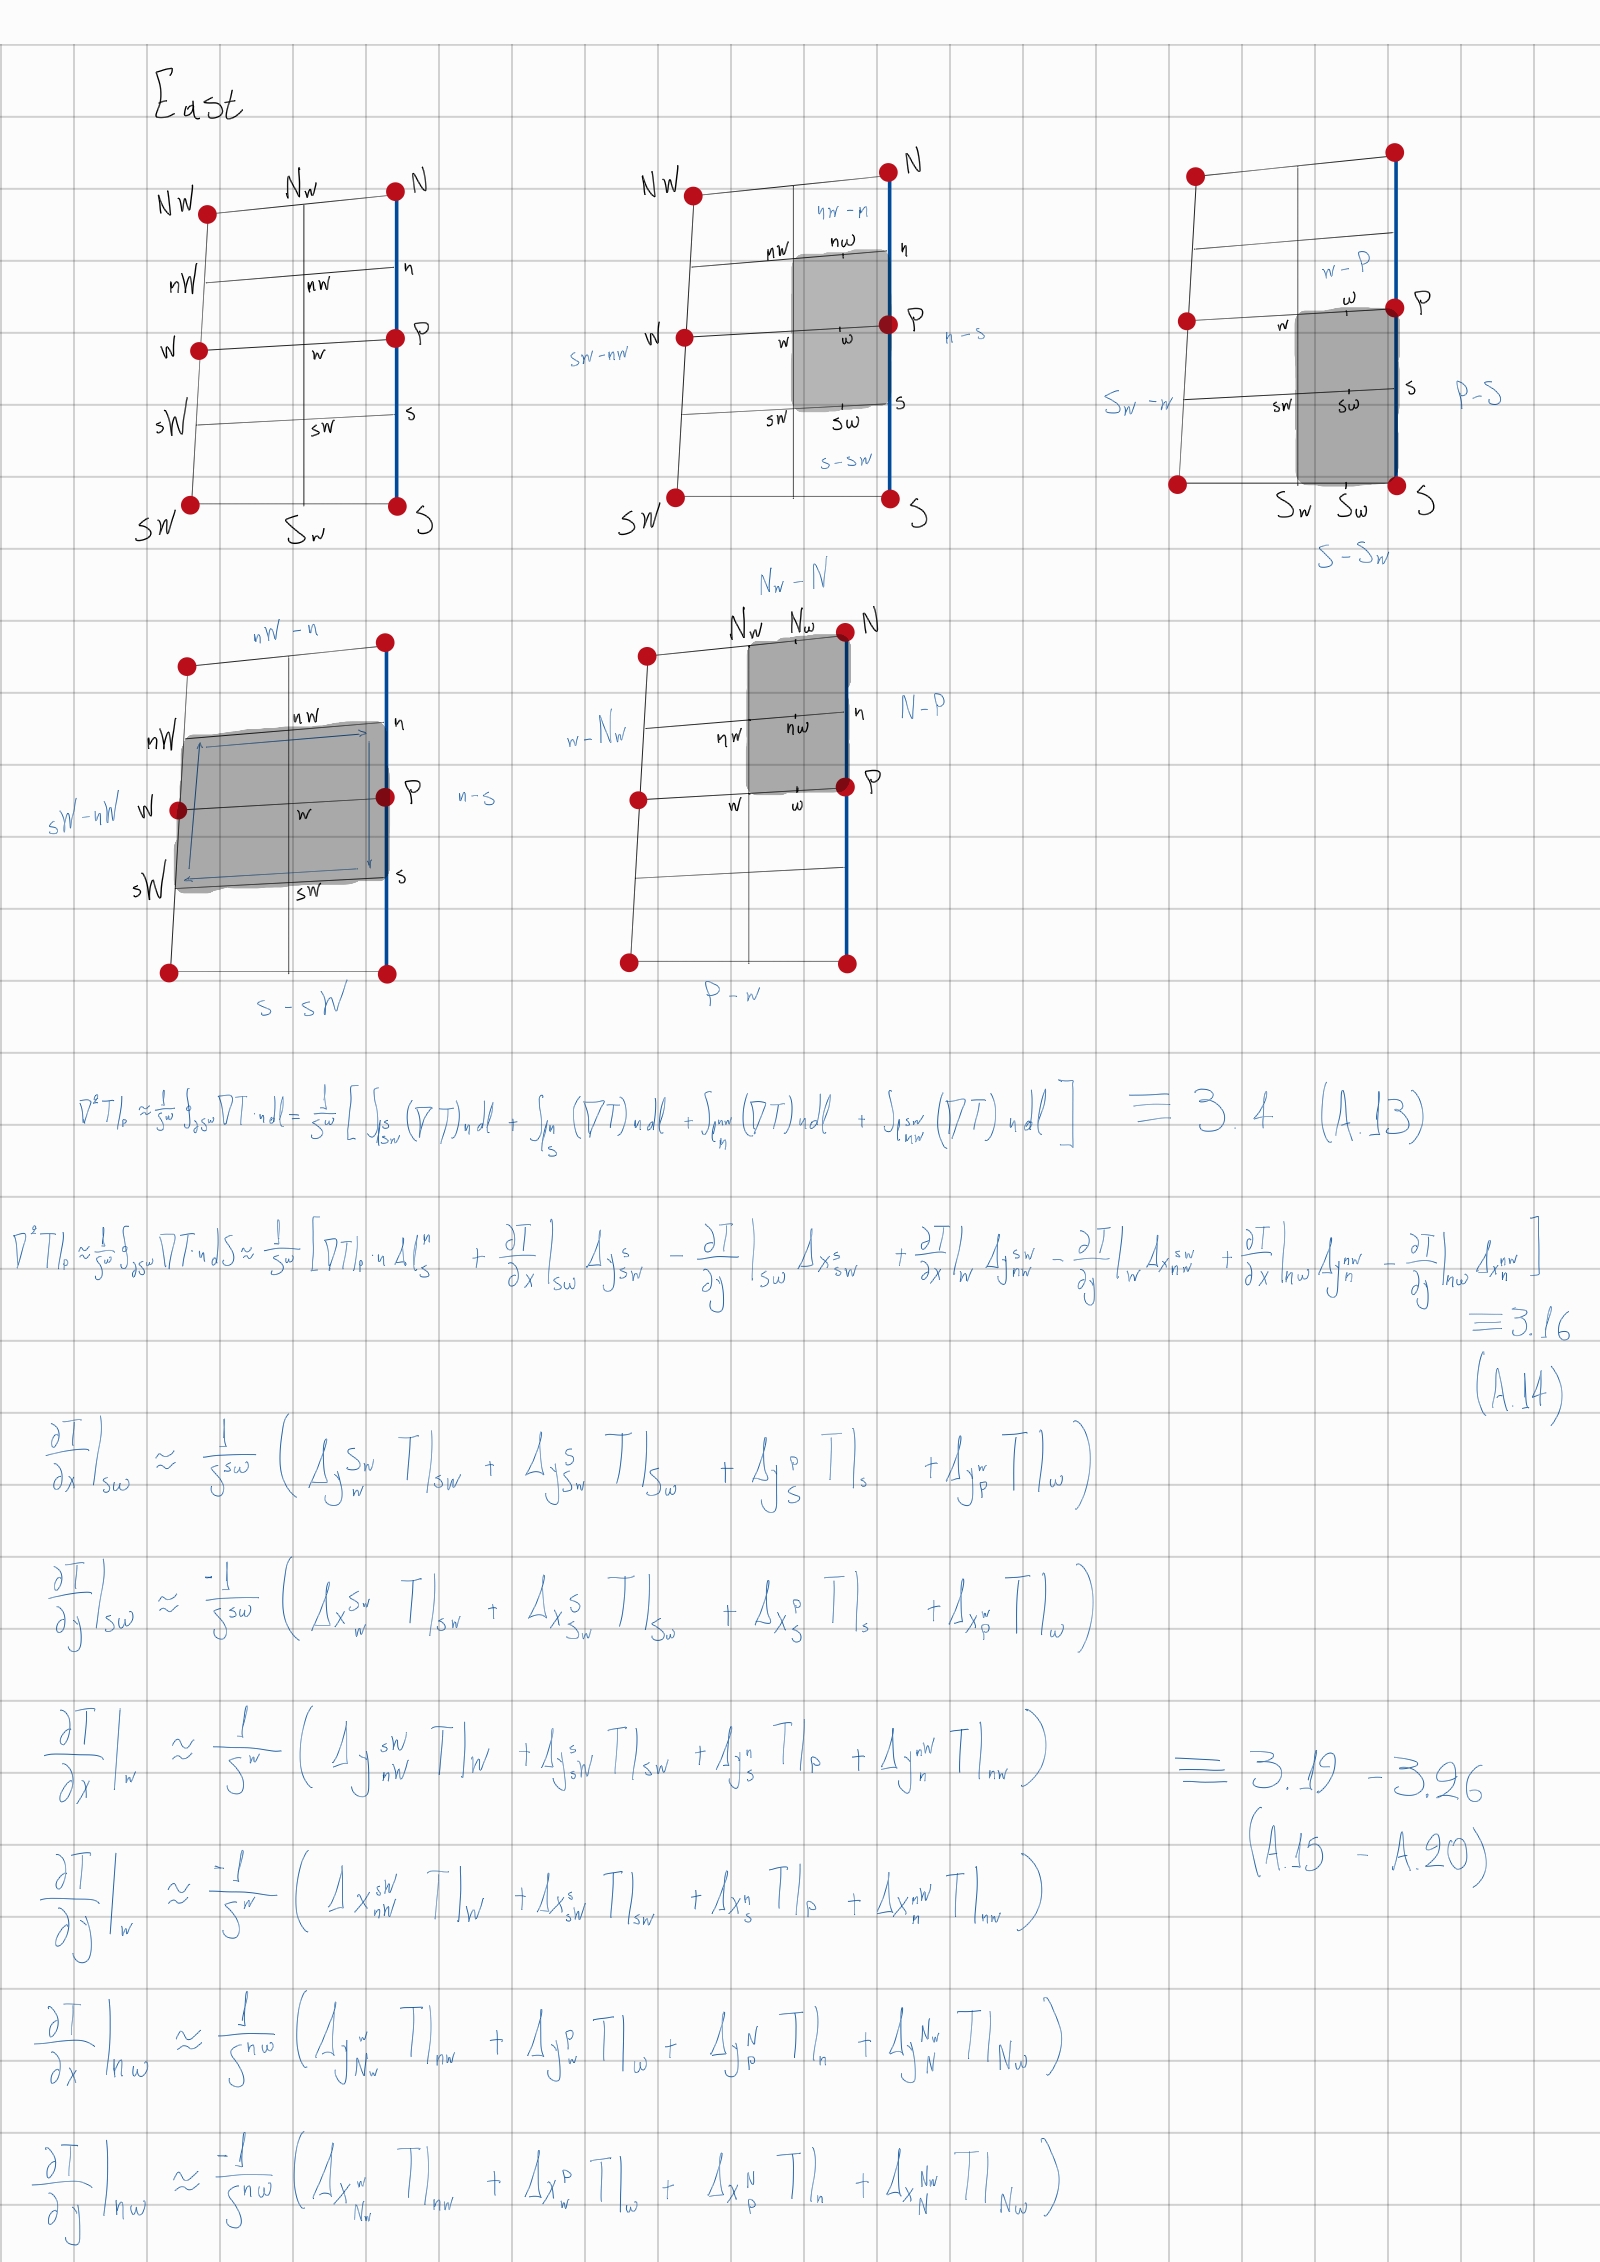 East
NW Nw N
nW nw n
W w P
sW sw s
SW Sw S
NW N
nw-n
nw nω n
sw-nw W w ω P n-s
sw sω s
s-sw
SW S
w-P
w ω P
Sw-w sw sω s P-S
Sw Sω S
S-Sw
nW-n
nW nw n
sW-nW W w P n-s
sW sw s
s-sW
Nw-N
Nw Nω N
w-Nw nw nω n N-P
w ω P
P-w
∇²T|_P ≈ 1/S^ω ∮_∂S^ω ∇T·n dl = 1/S^ω [ ∫_{l_sw^s} (∇T) n dl + ∫_{l_s^n} (∇T) n dl + ∫_{l_n^nw} (∇T) n dl + ∫_{l_nw^sw} (∇T) n dl ] ≡ 3.4 (A.13)
∇²T|_P ≈ 1/S^ω ∮_∂S^ω ∇T·n dS ≈ 1/S^ω [ ∇T|_P · n Δl_s^n + ∂T/∂x|_sω Δy_sw^s - ∂T/∂y|_sω Δx_sw^s + ∂T/∂x|_w Δy_nw^sw - ∂T/∂y|_w Δx_nw^sw + ∂T/∂x|_nω Δy_n^nw - ∂T/∂y|_nω Δx_n^nw ]
≡ 3.16
(A.14)
∂T/∂x|_sω ≈ 1/S^sω ( Δy_w^Sw T|_sw + Δy_Sw^S T|_Sω + Δy_S^P T|_s + Δy_P^w T|_ω )
∂T/∂y|_sω ≈ -1/S^sω ( Δx_w^Sw T|_sw + Δx_Sw^S T|_Sω + Δx_S^P T|_s + Δx_P^w T|_ω )
∂T/∂x|_w ≈ 1/S^w ( Δy_nW^sW T|_W + Δy_sW^s T|_sw + Δy_s^n T|_P + Δy_n^nW T|_nw ) ≡ 3.19 - 3.26
(A.15 - A.20)
∂T/∂y|_w ≈ -1/S^w ( Δx_nW^sW T|_W + Δx_sW^s T|_sw + Δx_s^n T|_P + Δx_n^nW T|_nw )
∂T/∂x|_nω ≈ 1/S^nω ( Δy_Nw^w T|_nw + Δy_w^P T|_ω + Δy_P^N T|_n + Δy_N^Nw T|_Nω )
∂T/∂y|_nω ≈ -1/S^nω ( Δx_Nw^w T|_nw + Δx_w^P T|_ω + Δx_P^N T|_n + Δx_N^Nw T|_Nω )